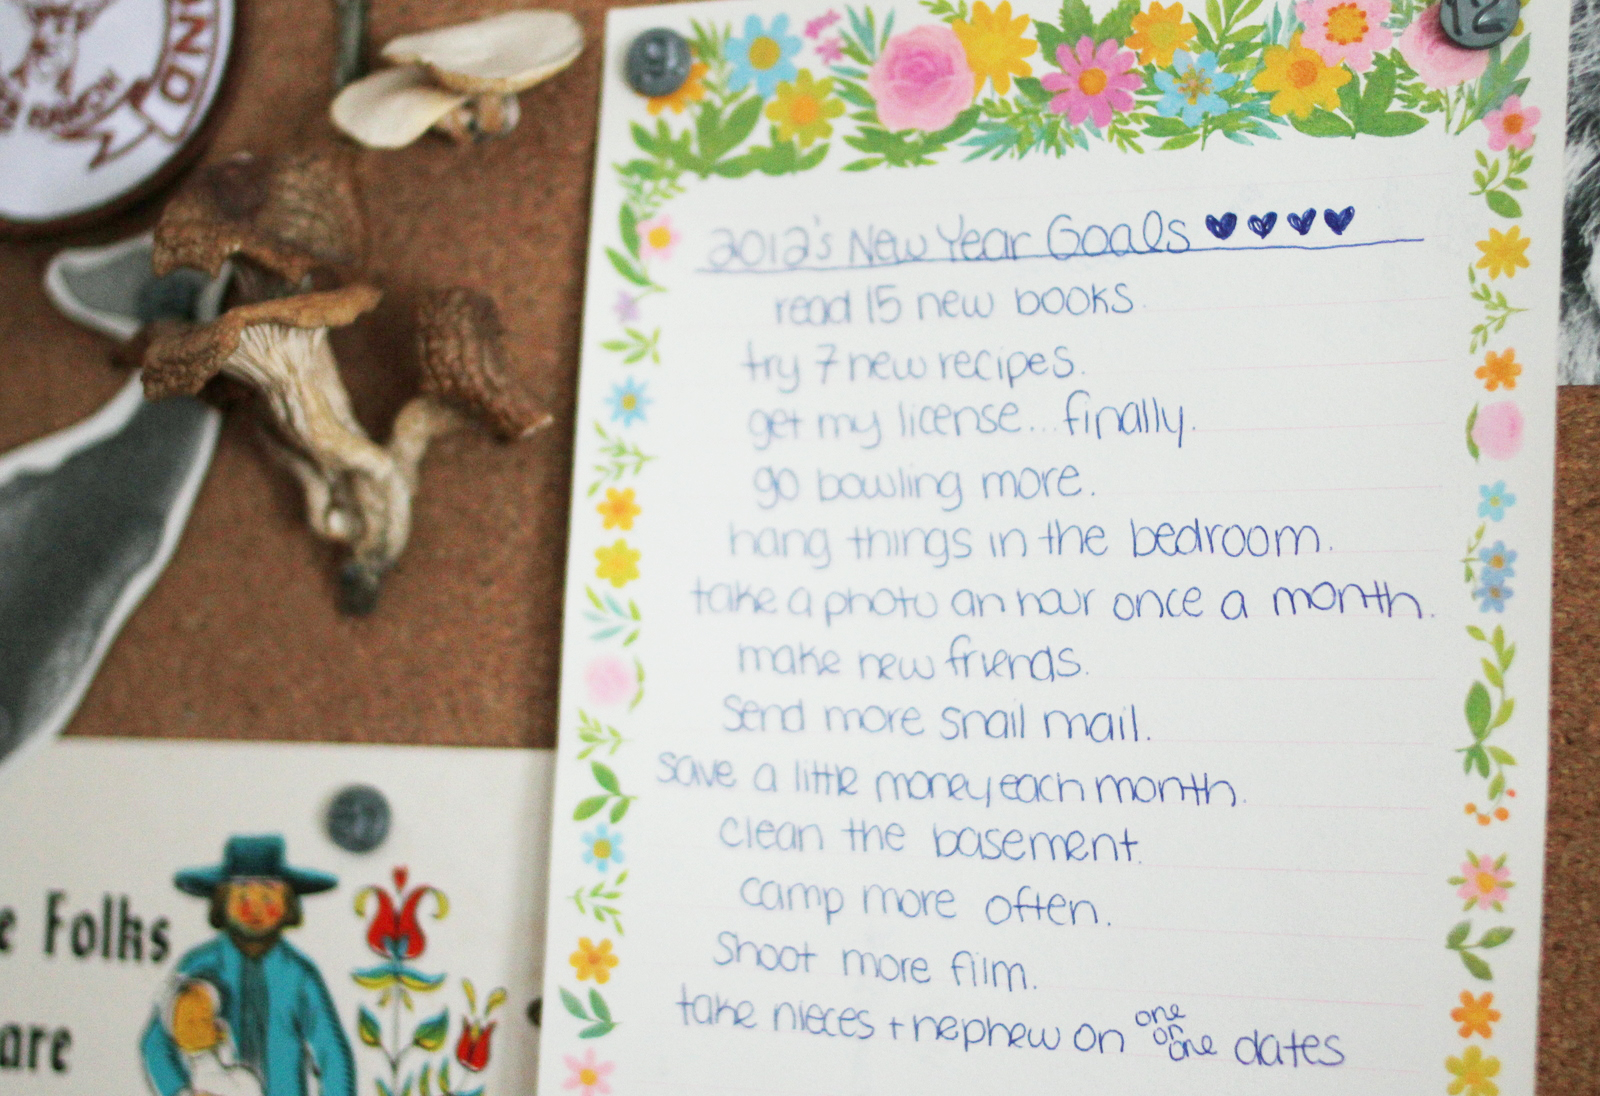 AND
RANCH
9
12
2012's New Year Goals
read 15 new books.
try 7 new recipes.
get my license... finally.
go bowling more.
hang things in the bedroom.
take a photo an hour once a month.
make new friends.
send more snail mail.
save a little money each month.
clean the basement.
camp more often.
Shoot more film.
take nieces + nephew on one on one dates
Folks
are